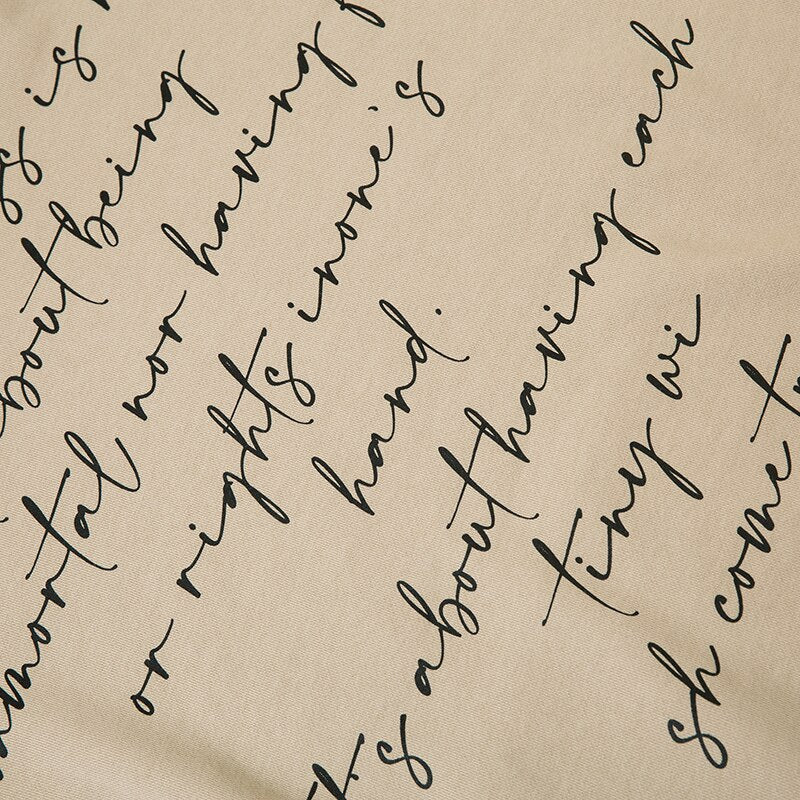 is
about being
immortal nor having
or rights inone's
hand.
it's about having each
tiny wi
sh come tr